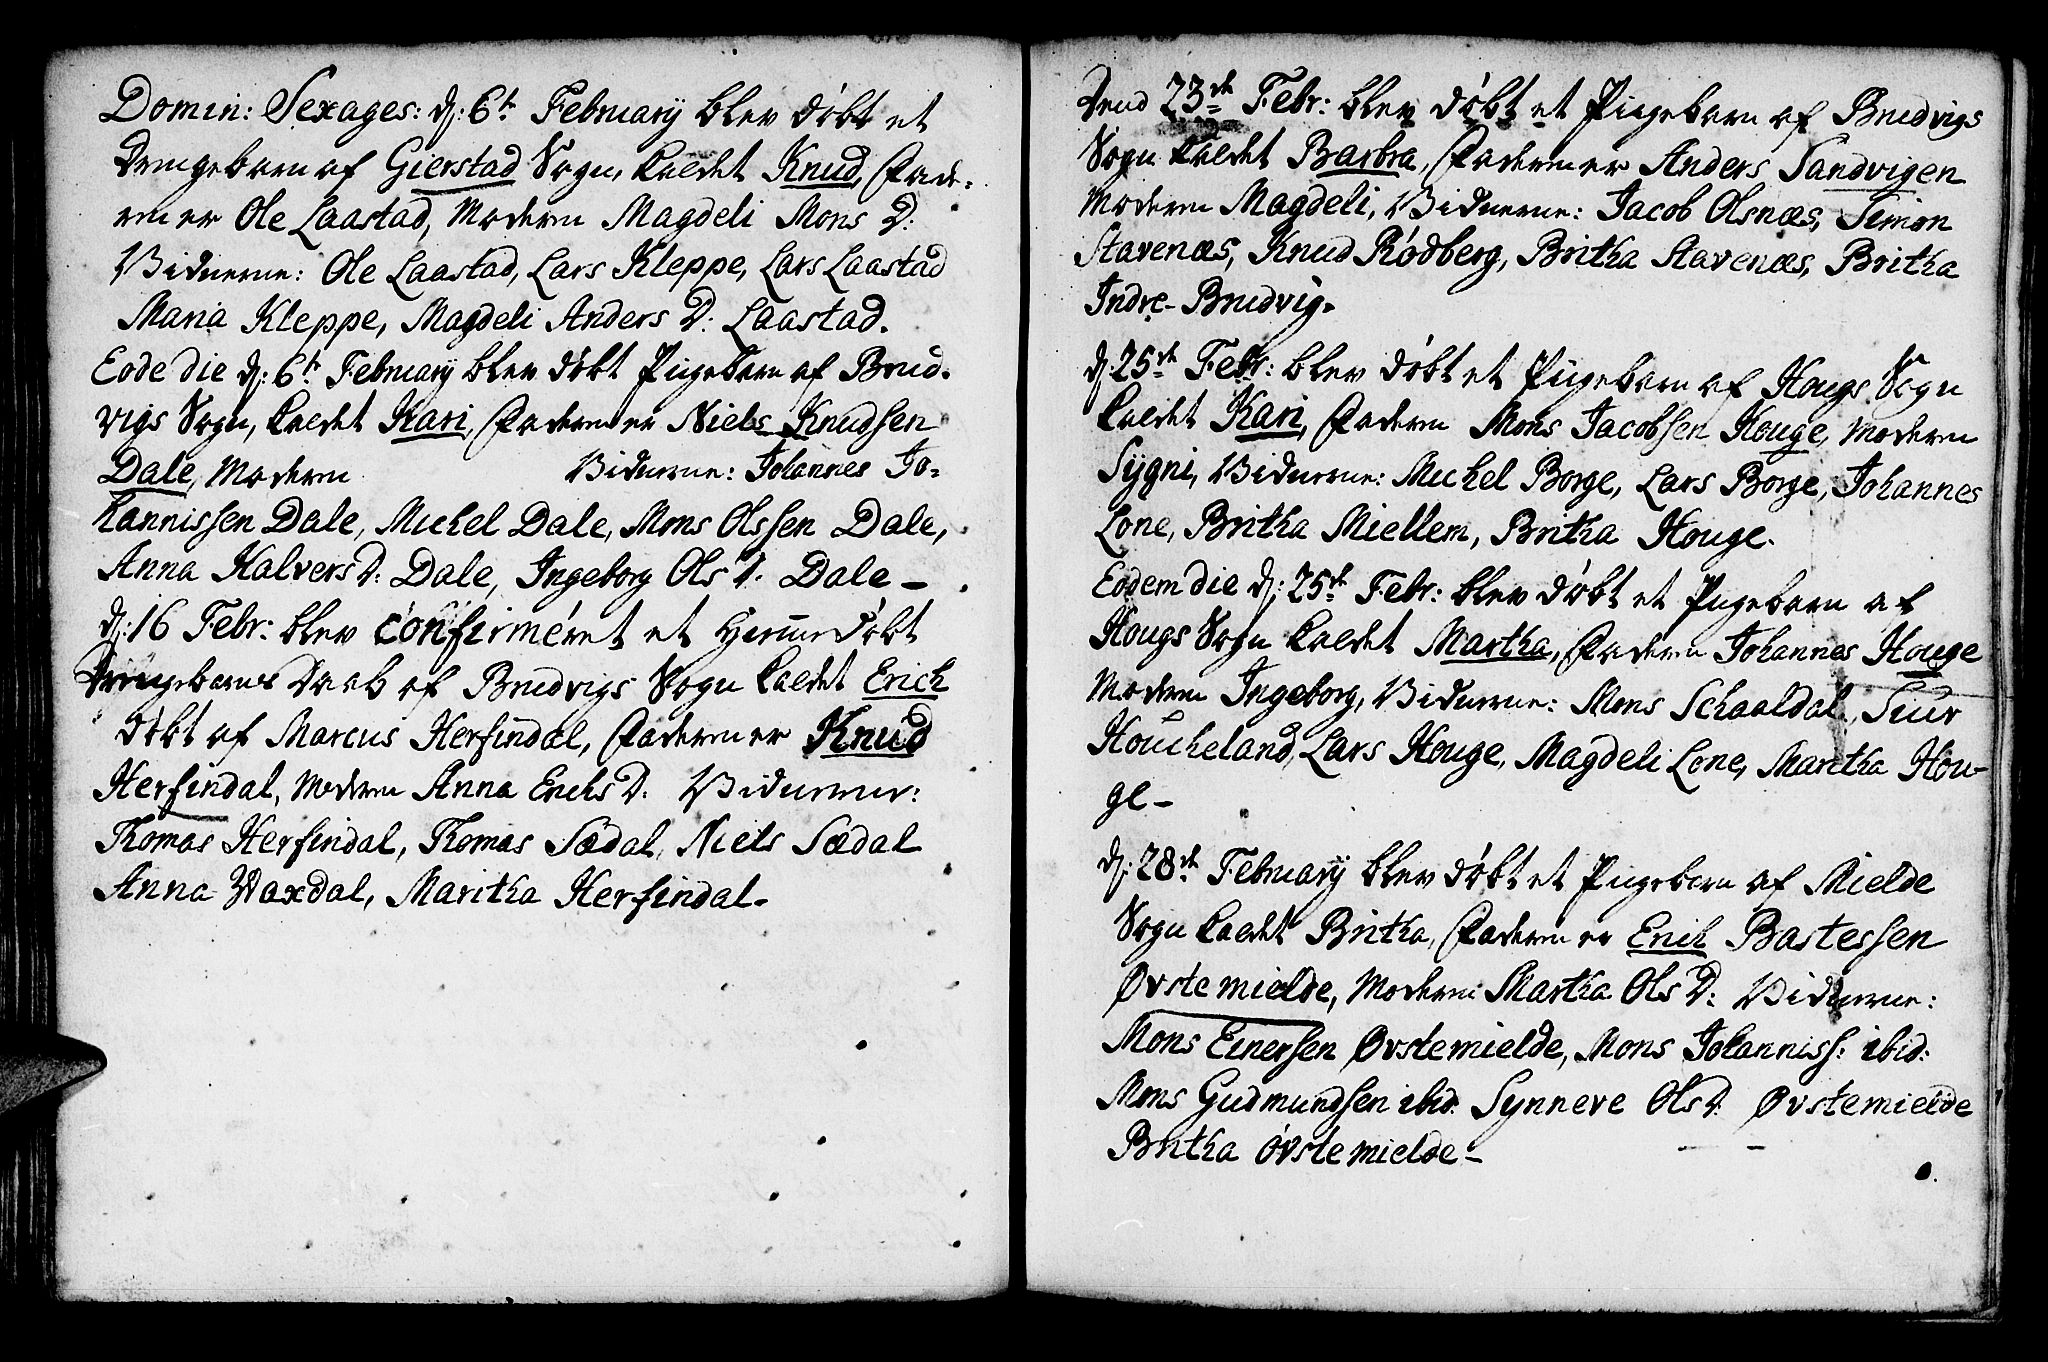 Domin: Sexages: d: 6te Februarÿ blev døbt et
Drengebarn af Gierstad Sogn, kaldet Knud, Fade-
ren er Ole Laastad, Moderen Magdeli Mons D:
Vidnerne: Ole Laastad, Lars Kleppe, Lars Laastad
Maria Kleppe, Magdeli Anders D: Laastad.
Eode die d: 6te Februarÿ blev døbt Pigebarn af Brud-
vigs Sogn, kaldet Kari, Faderen er Niels Knudsen
Dale, Moderen Vidnerne: Johannes Jo-
hannissen Dale, Michel Dale, Mons Olssen Dale,
Anna Halvers D: Dale, Ingeborg Ols D. Dale –
d: 16 Febr: blev confirmeret et hiemmedøbt
Drengebarns Daab af Brudvigs Sogn kaldet Erich
døbt af Marcus Herfindal, Faderen er Knud
Herfindal, Moderen Anna Erichs D. Vidnerne:
Thomas Herfindal, Thomas Sædal, Niels Sædal
Anna Waxdal, Maritha Herfindal.
Dend 23de Febr: blev døbt et Pigebarn af Brudvigs
Sogn kaldet Barbra, Faderen er Anders Sandvigen
Moderen Magdeli, Vidnerne: Jacob Olsnæs, Simon
Stavenæs, Knud Rödberg, Britha Stavenæs, Britha
Indre-Brudvig.
d: 25de Febr: blev døbt et Pigebarn af Hougs Sogn
kaldet Kari, Faderen Mons Jacobsen Houge, Moderen
Sygni, Vidnerne: Michel Borge, Lars Borge, Johannes
Lone, Britha Miellem, Britha Houge.
Eodem die d: 25de Febr: blev døbt et Pigebarn af
Hougs Sogn kaldet Martha, Faderen Johannes Houge
Moderen Ingeborg, Vidnerne: Mons Schaaldal, Siur
Houcheland, Lars Houge, Magdeli Lone, Maritha Hou-
ge –
d: 28de Februarÿ blev døbt et Pigebarn af Mielde
Sogn kaldet Britha, Faderen er Erich Bastessen
Øvstemielde, Moderen Martha Ols D: Vidnerne:
Mons Einersen Øvstemielde, Mons Johanniss: ibid:
Mons Gudmundsen ibid. Synneve Ols D. Øvstemielde
Britha Øvstemielde –